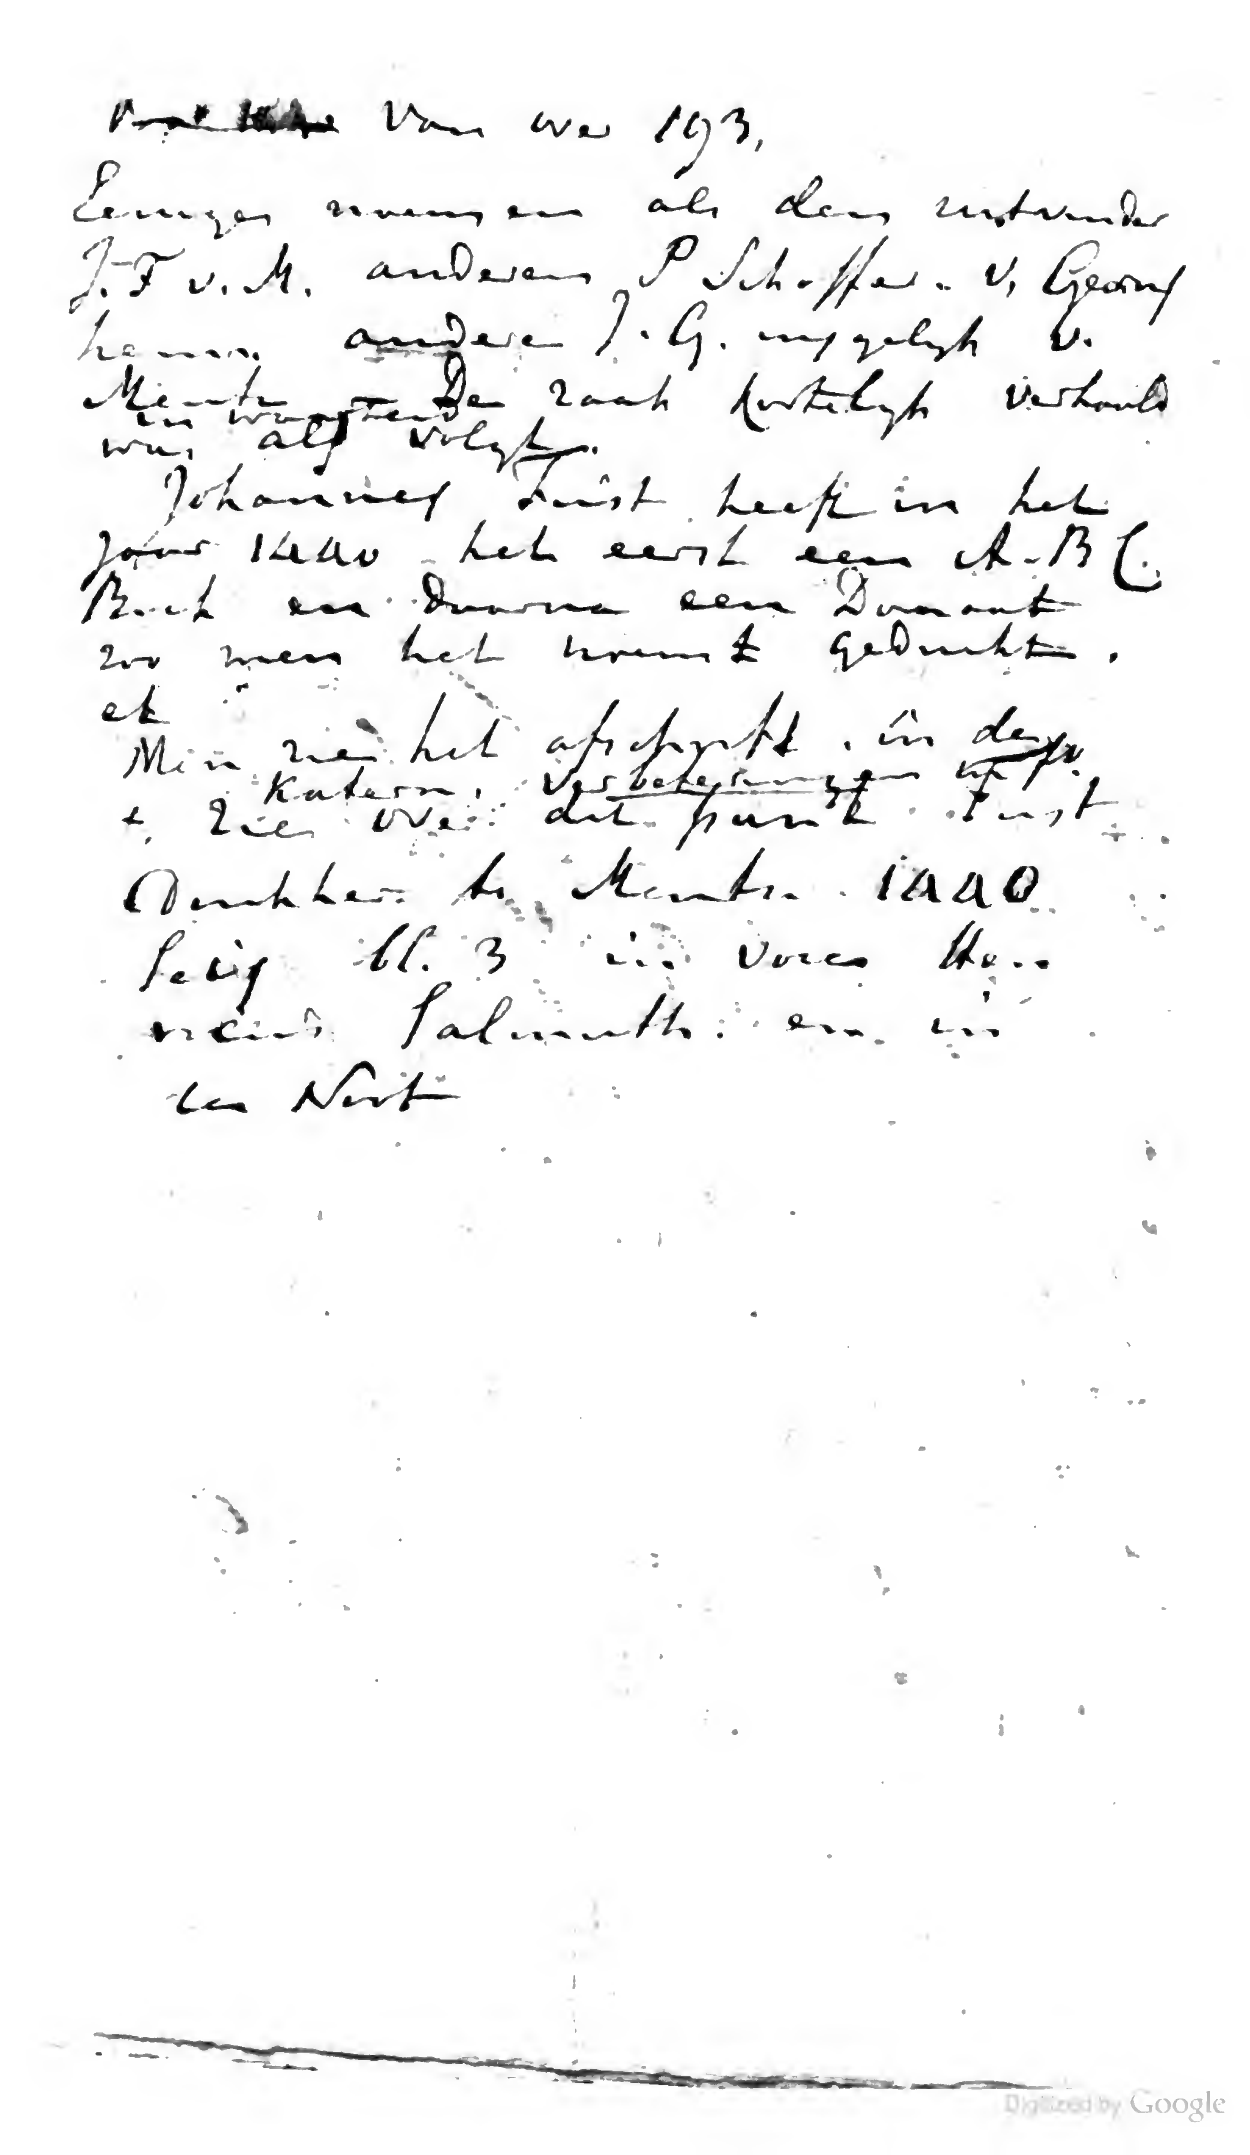 Van over 193,
Eenige noemen als den uitvinder
J. F v. M. anderen P Schoffer. v. Gerns
heim. andere J. G. insgelyk v.
Mentz — De zaak kortelyk verhaald
in waarheid
was als volgt.
Johannes Fust heeft in het
jaar 1440 het eerst een A.B C.
Boek en daarna een Donaat
zoo men het noemt gedrukt.
etc
Men zie het afschrift. in de
Katern. verbeteringen op
+. Zie over dit punt Fust
Drukker te Mentz. 1440
Seiz bl. 3 in voce Hen
ricus Salmuth. en in
de Noot
Digitized by Google